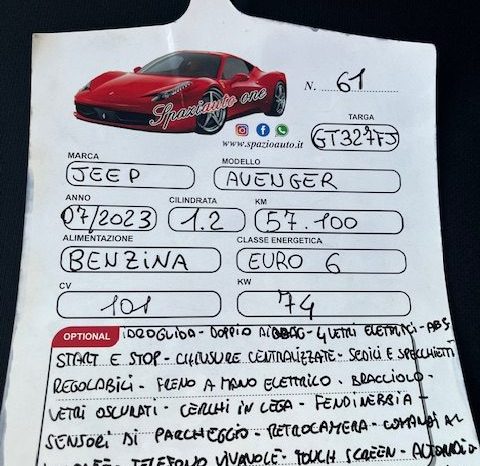 Spaziauto one
N. 61
www.spazioauto.it
TARGA
GT327FJ
MARCA
MODELLO
JEEP
AVENGER
ANNO
CILINDRATA
KM
07/2023
1.2
57.100
ALIMENTAZIONE
CLASSE ENERGETICA
BENZINA
EURO 6
CV
KW
101
74
OPTIONAL IDROGUIDA - DOPPIO AIRBAG - 4 VETRI ELETTRICI - ABS
START E STOP - CHIUSURE CENTRALIZZATE - SEDILI E SPECCHIETTI
REGOLABILI - FRENO A MANO ELETTRICO - BRACCIOLO -
VETRI OSCURATI - CERCHI IN LEGA - FENDINEBBIA -
SENSORI DI PARCHEGGIO - RETROCAMERA - COMANDI AL
TELEFONO VIVAVOCE - TOUCH SCREEN -